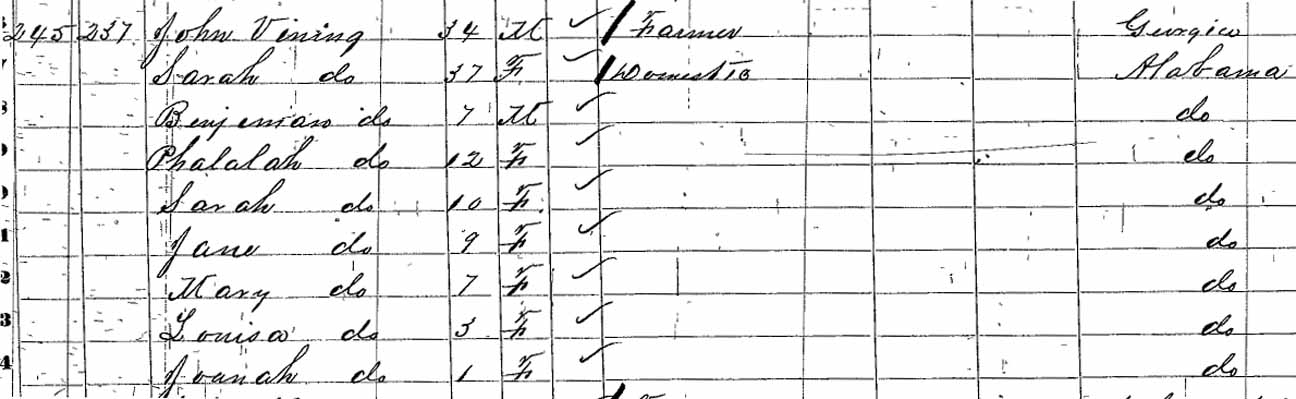 245 237 John Vining 34 M / Farmer Georgia
7 Sarah do 37 F / Domestic Alabama
8 Benjeman do 7 M do
9 Phalalah do 12 F do
Sarah do 10 F do
1 Jane do 9 F do
2 Mary do 7 F do
3 Louisa do 3 F do
4 Joanah do 1 F do